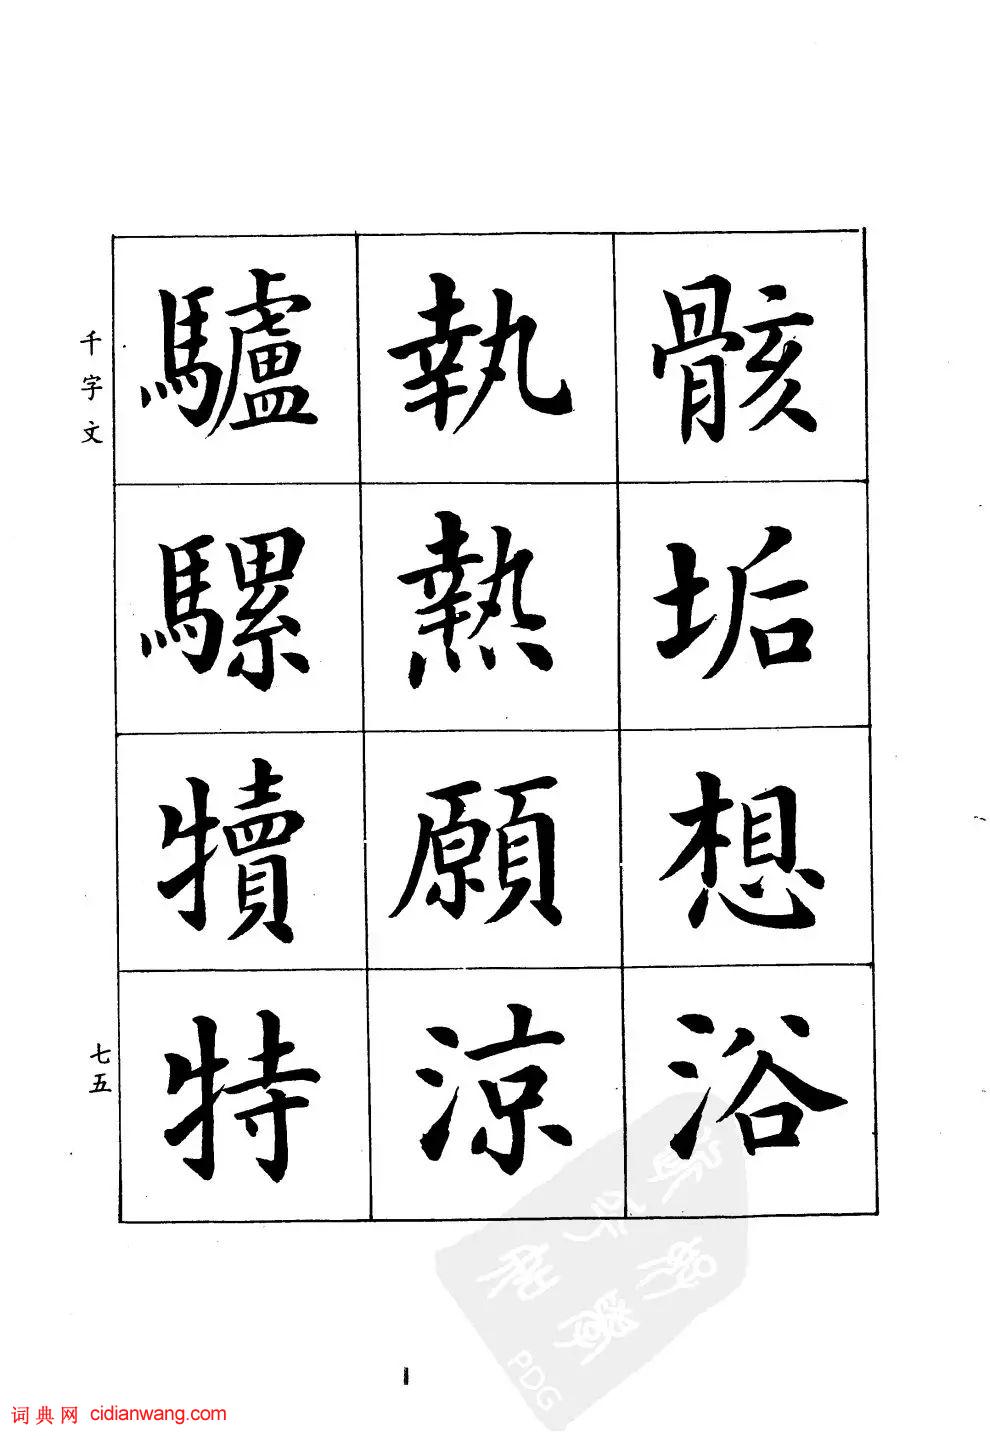 骸垢想浴
執熱願涼
驢騾犢特
千字文
七五
PDG
词典网 cidianwang.com